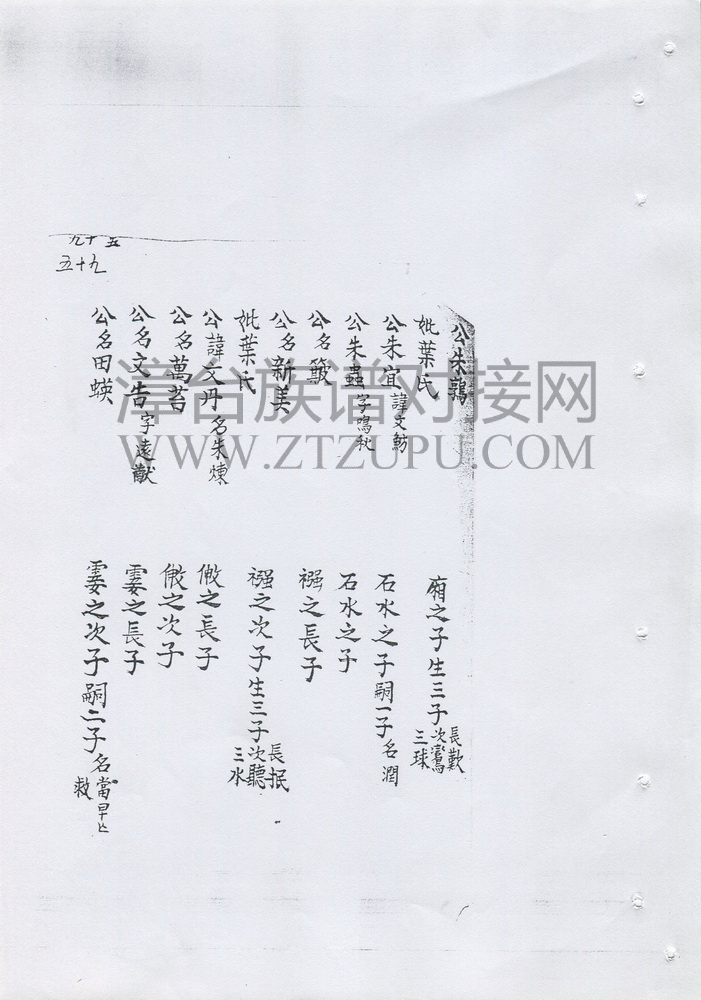 九十五
五十九
公朱鶏
妣葉氏
廂之子生三子 長歡 次鶯 三球
公朱宜 諱文魴
石水之子嗣一子 名潤
公朱蟲 字鳴秋
石水之子
公名簸
襁之長子
公名新美
妣葉氏
襁之次子生三子 長抿 次聽 三水
公諱文丹 名朱煉
儆之長子
公名萬苔
儆之次子
公名文告 字遠猷
霎之長子
公名田蜈
霎之次子嗣二子 名當早亡 救
漳台族谱对接网
WWW.ZTZUPU.COM